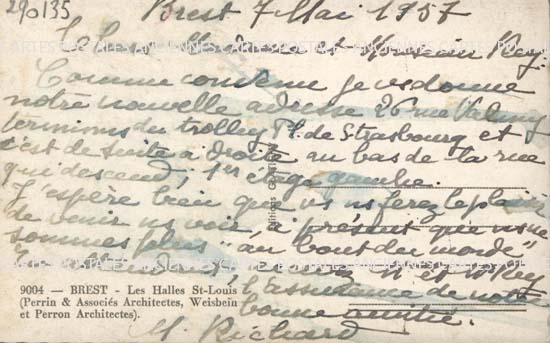 290135
Brest 7 Mai 1957
Madame et Monsieur Rey.
Comme convenu je vs donne
notre nouvelle adresse 26 rue Valmy
terminus du trolley Pl. de Strasbourg et
c'est de suite à droite au bas de la rue
qui descend, 1er étage gauche.
J'espère bien que vs ns ferez le plaisir
de venir ns voir, à présent que ns ne
sommes plus "au bout du monde"
M et Mme Rey
l'assurance de notre
bonne amitié.
Richard
Editions
9004 — BREST - Les Halles St-Louis
(Perrin & Associés Architectes, Weisbein
et Perron Architectes).